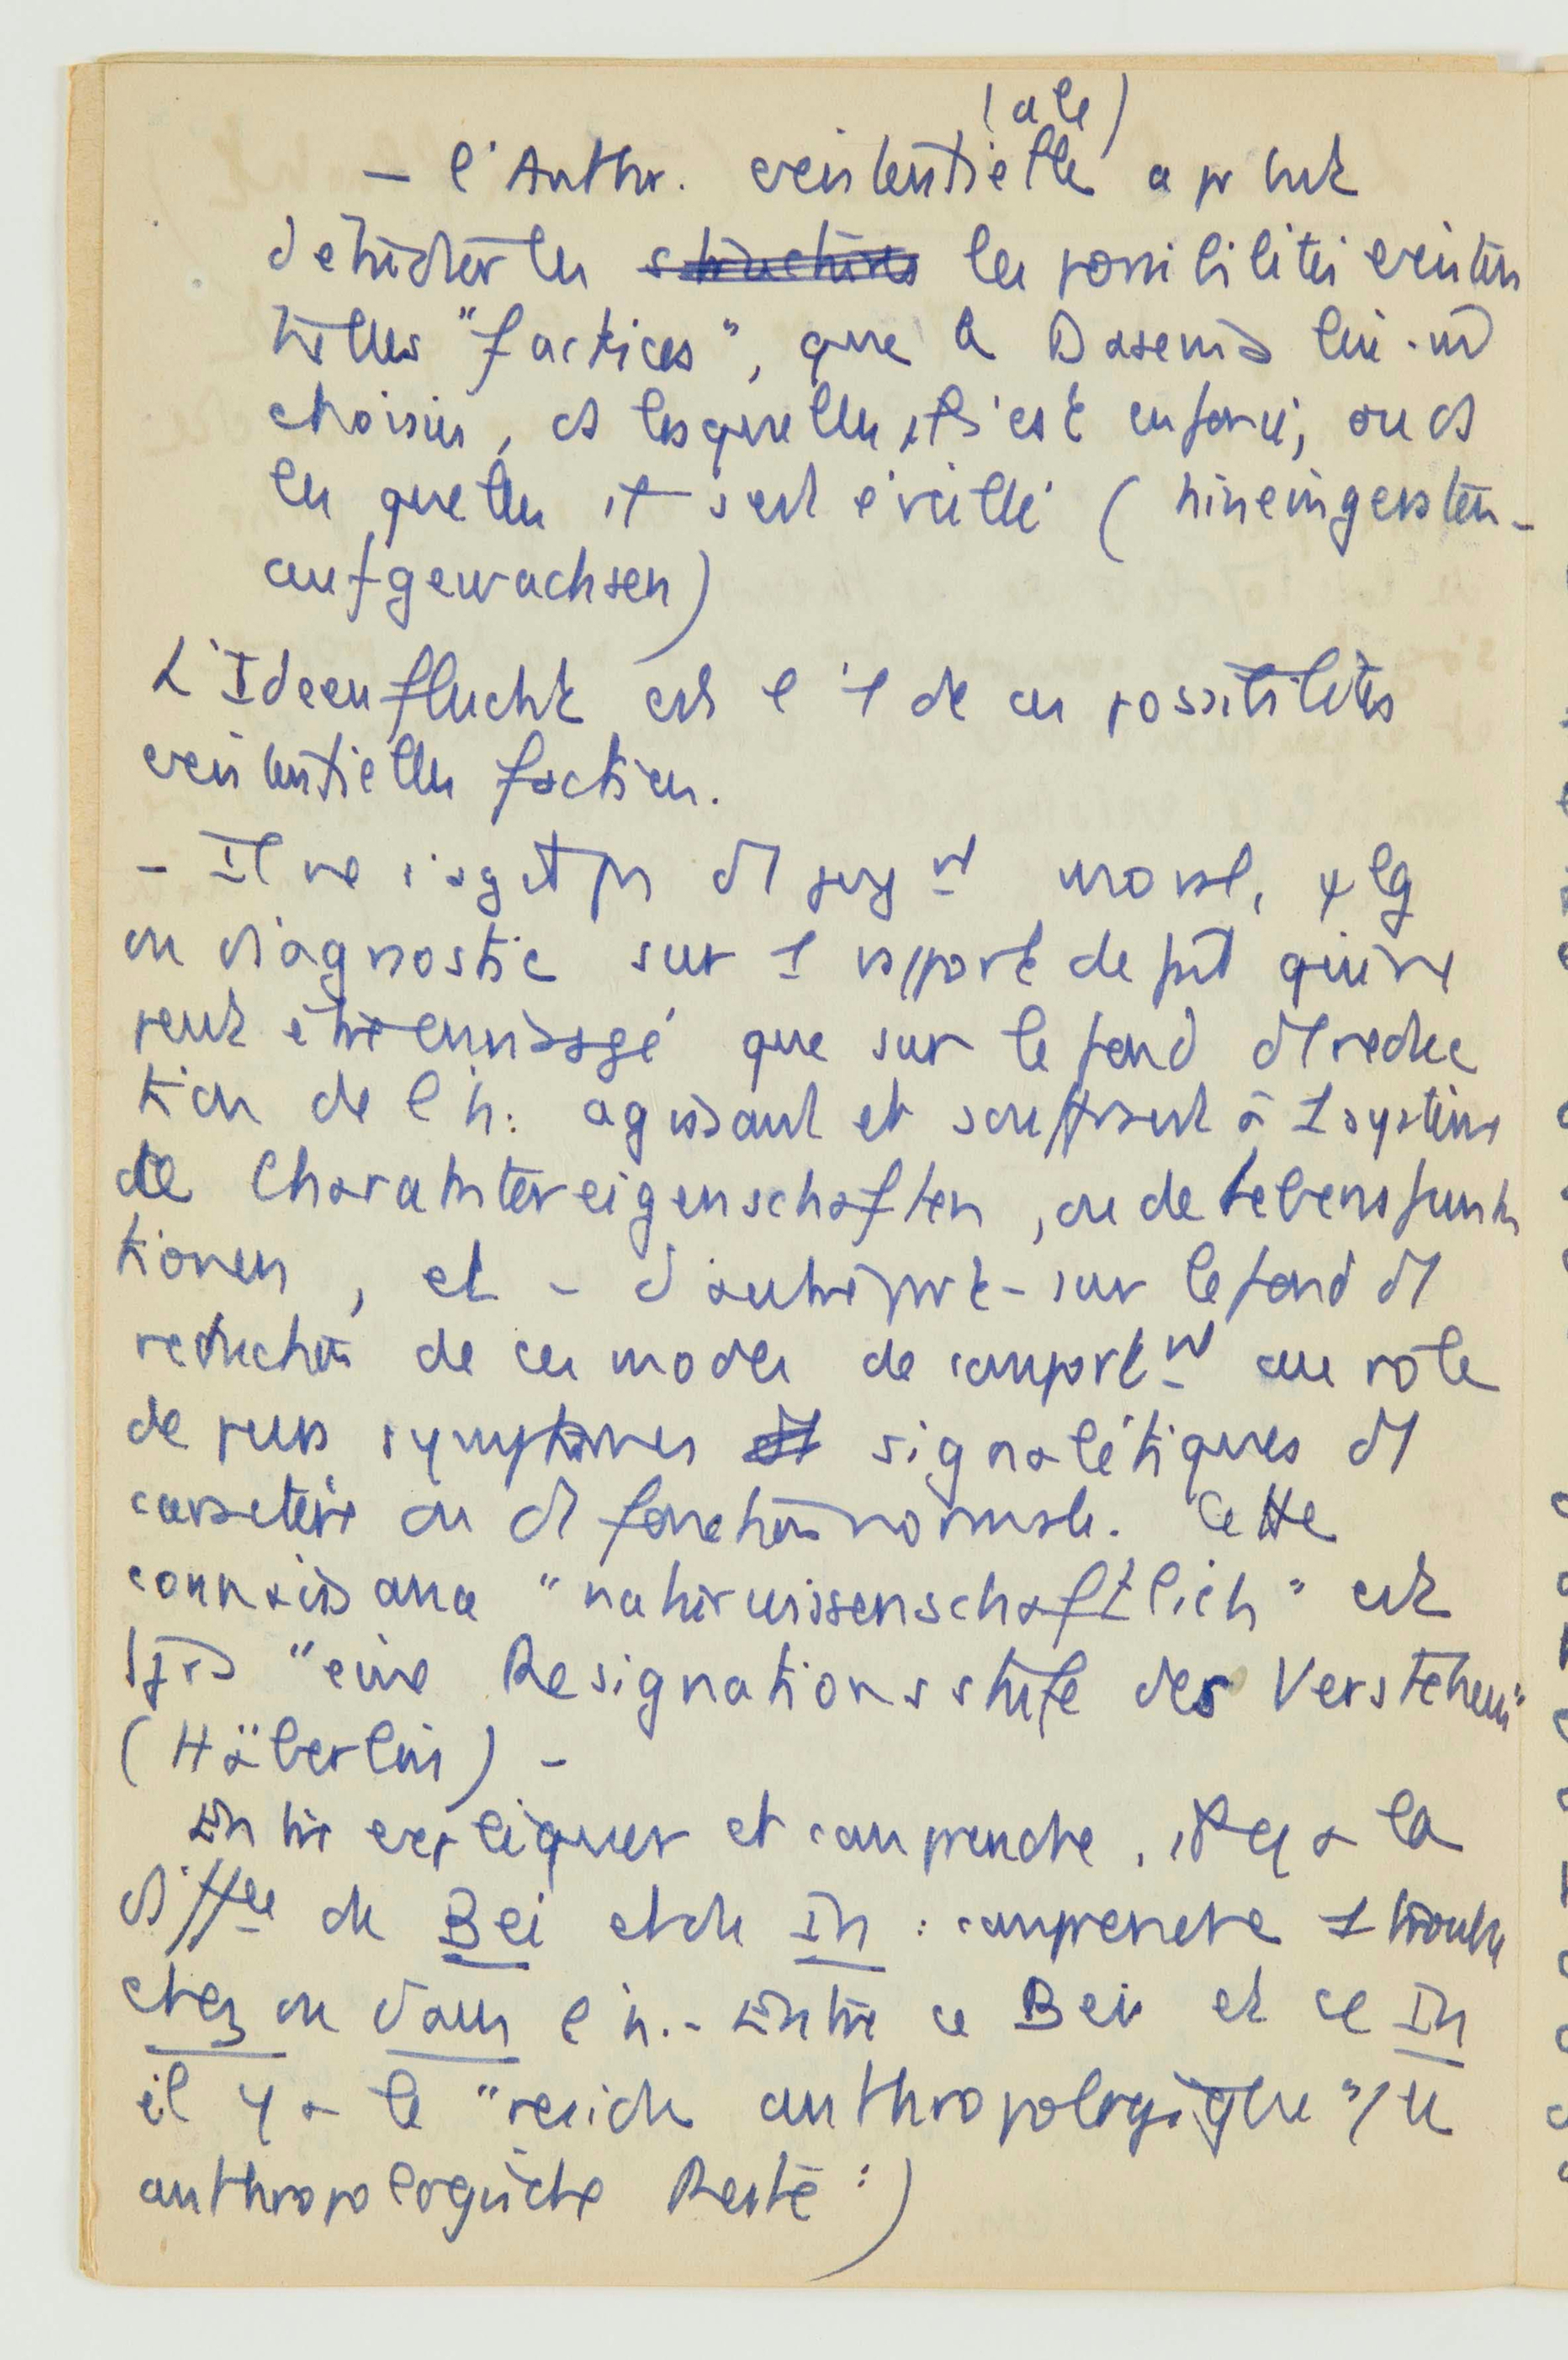 (ale)
— l'Anthr. existentielle a pr but
d'étudier les structures les possibilités existen
tielles "factices", que le Dasein a lui-m̂
choisies, ds lesquelles il s'est enfoncé, ou ds
lesquelles il s'est éveillé (hineingeraten-
aufgewachsen)
L'Ideenflucht est l'1 de ces possibilités
existentielles factices.
- Il ne s'agit pas d'1 jugnt moral,
ou diagnostic sur 1 rapport de fait qui ne
peut être envisagé que sur le fond d'1 réduc
tion de l'h. agissant et souffrant à 1 système
de Charaktereigenschaften, ou de Lebensfunk
tionen, et - d'autre part - sur le fond d'1
réduction de ces modes de comportnt au rôle
de purs symptômes d'1 signalétiques d'1
caractère ou d'1 fonction normale. Cette
connaissance "naturwissenschaftlich" est
"eine Resignationsstufe des Verstehens"
(Häberlin) -
Entre expliquer et comprendre, il y a la
différce de Bei et de In : comprendre 1 trouble
chez ou dans l'h. - Entre ce Bei et ce In
il y a le "résidu anthropologique" (le
anthropologische Reste :)